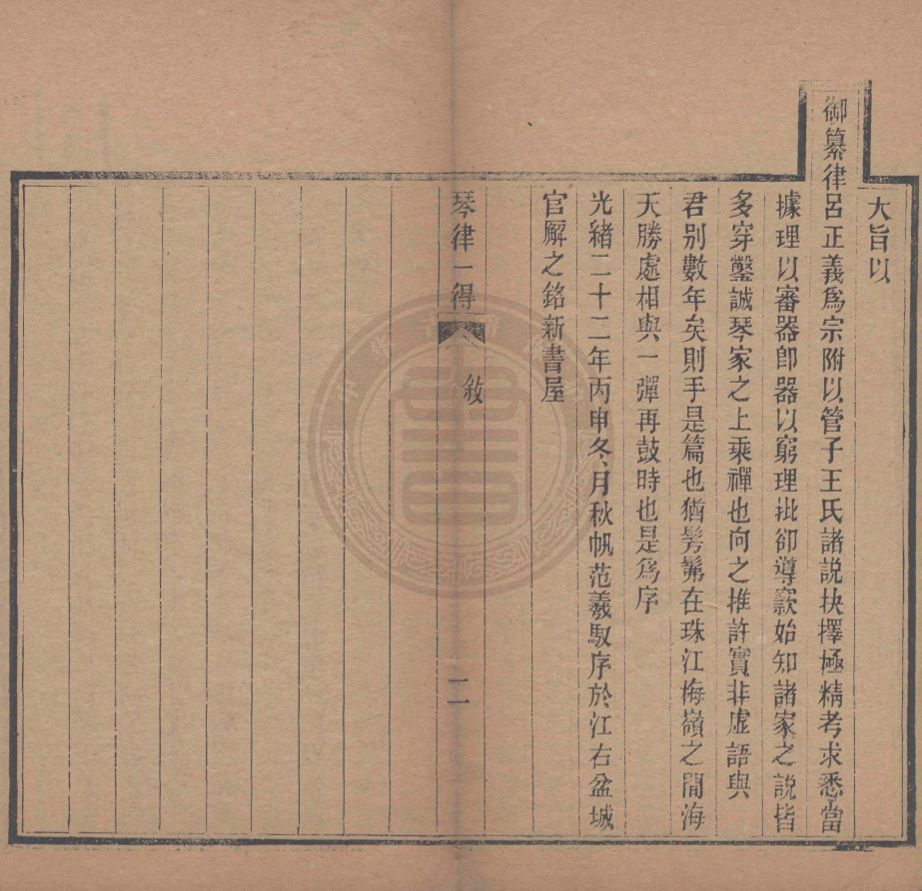 大旨以
御纂律呂正義爲宗附以管子王氏諸説抉擇極精考求悉當
據理以審器卽器以窮理批卻導窾始知諸家之説皆
多穿鑿誠琴家之上乘禪也向之推許實非虛語與
君别數年矣則手是篇也猶髣髴在珠江梅嶺之間海
天勝處相與一彈再鼓時也是爲序
光緒二十二年丙申冬月秋帆范羲馭序於江右盆城
官廨之銘新書屋
琴律一得
敘
二